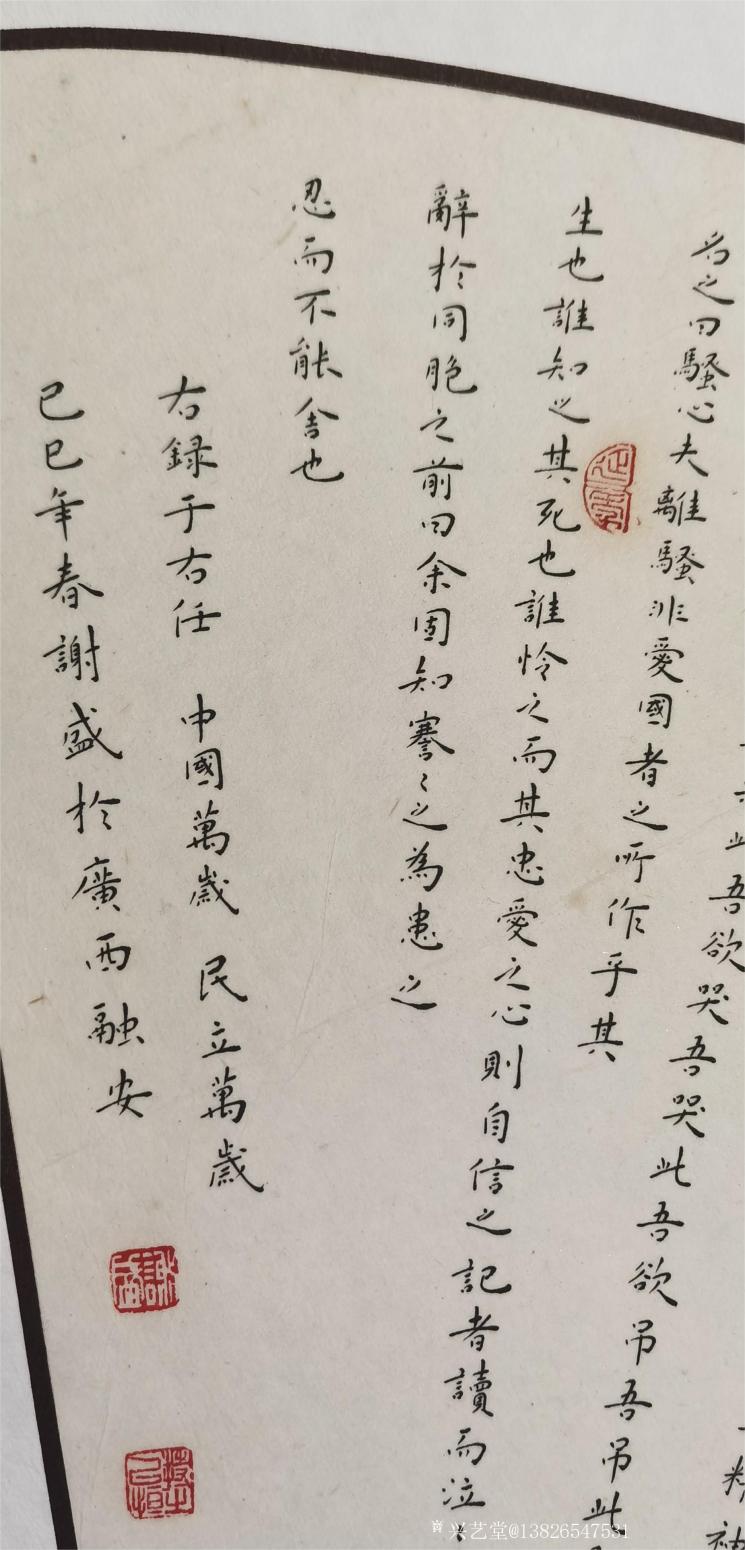 精神
此吾欲哭吾哭此吾欲吊吾吊此
名之曰騷心夫離騷非愛國者之所作乎其
生也誰知之其死也誰怜之而其忠愛之心則自信之記者讀而泣
辭於同胞之前曰余固知謇〻之為患之
忍而不能舍也
右録于右任 中國萬歲 民立萬歲
己巳年春謝盛於廣西融安
謝盛
兴艺堂@13826547531